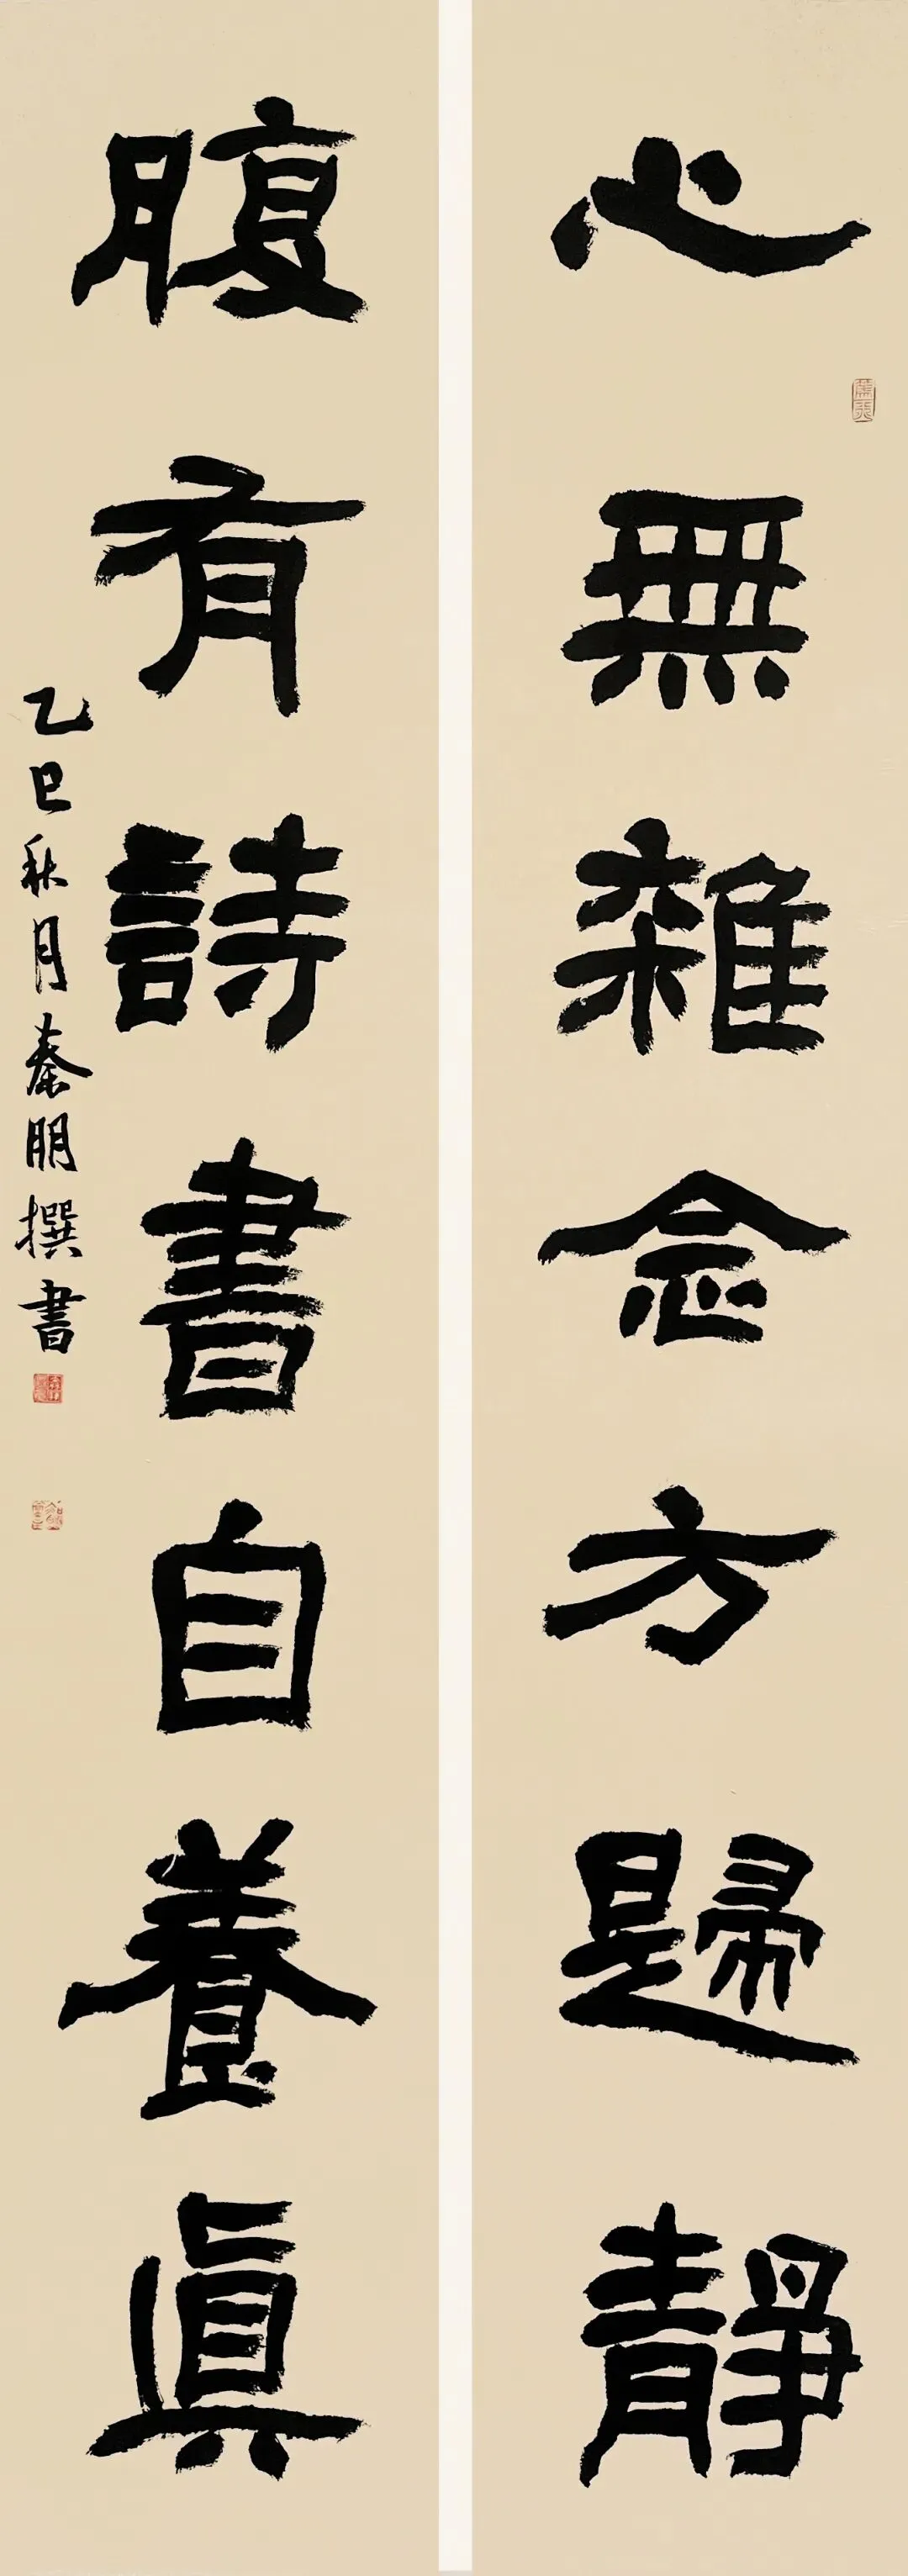 心無雜念方歸靜
腹有詩書自養真
乙巳秋月秦朋撰書